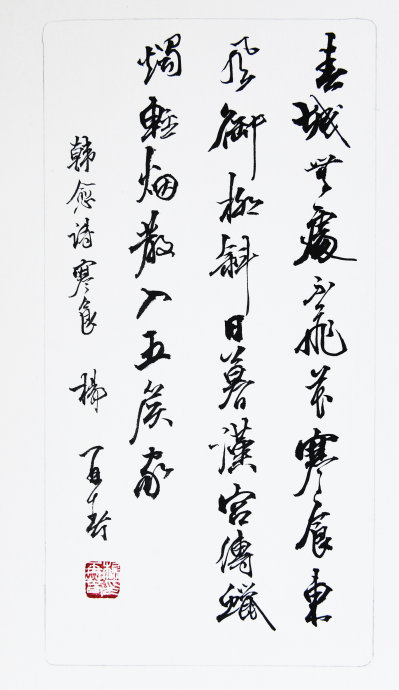 春城無處不飛花寒食東
風御柳斜日暮漢宮傳蠟
燭輕烟散入五侯家
韓愈诗寒食 楊